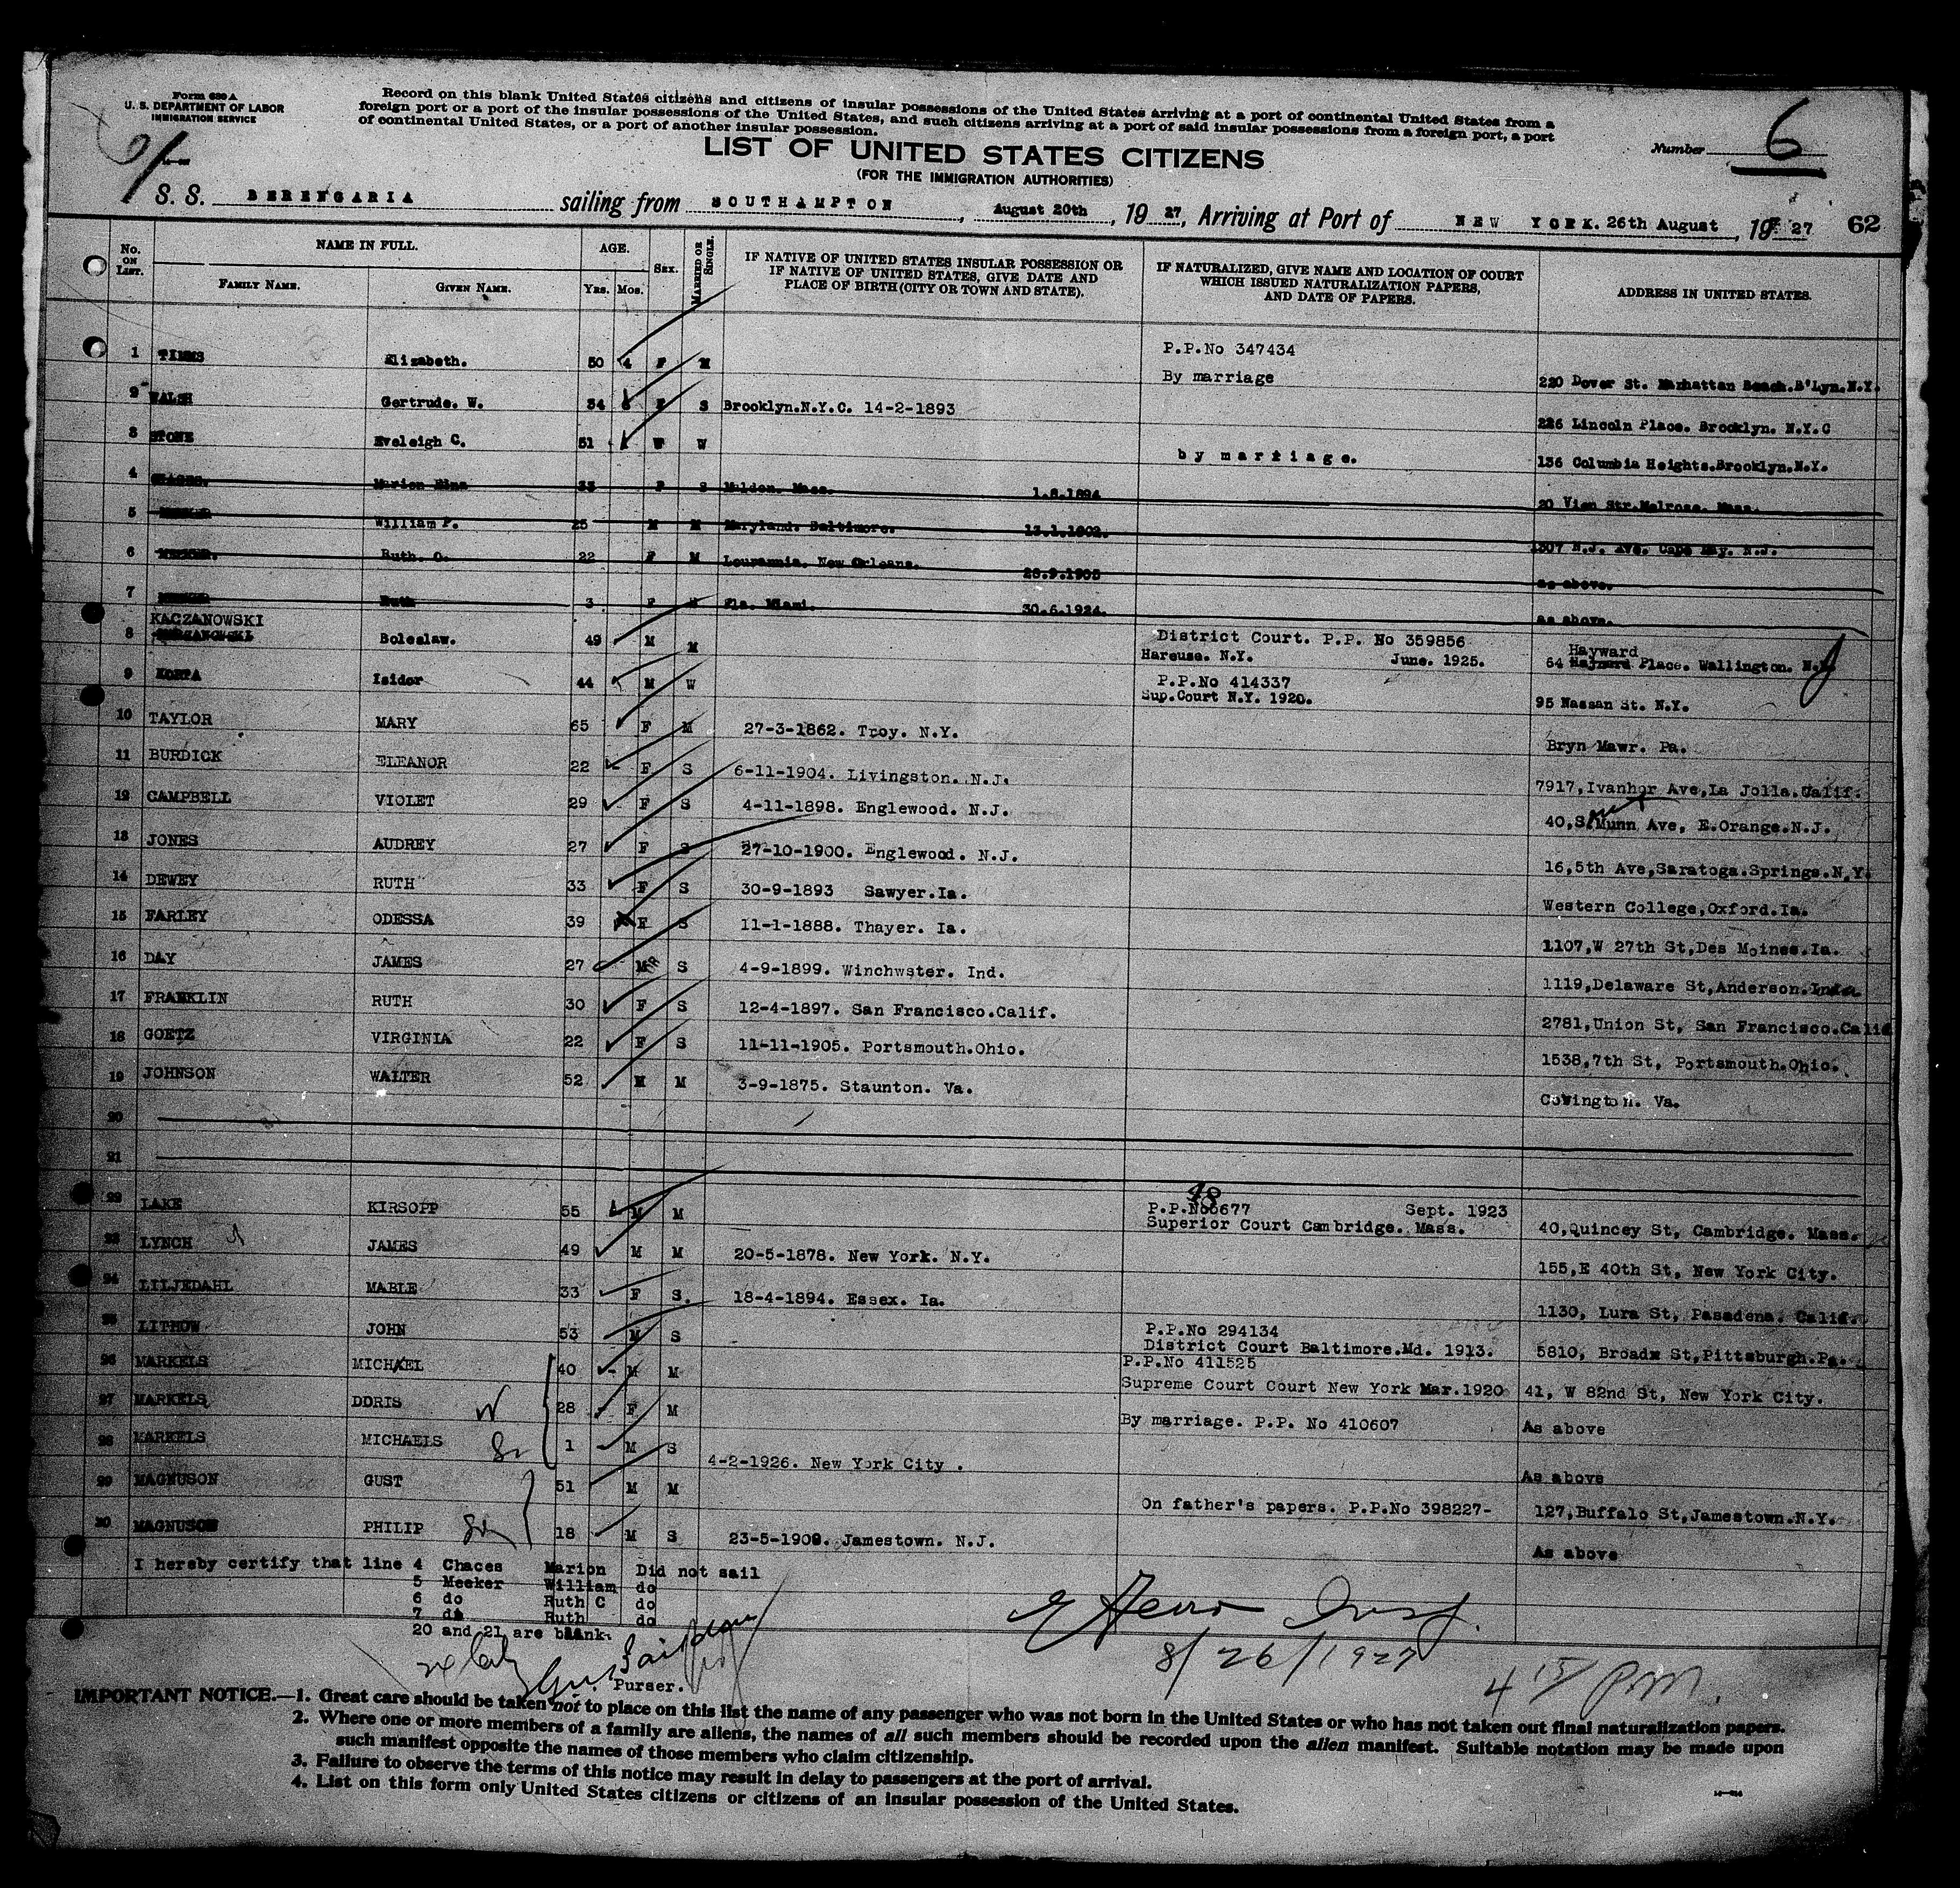 Form 630 A
U. S. DEPARTMENT OF LABOR
IMMIGRATION SERVICE
Record on this blank United States citizens and citizens of insular possessions of the United States arriving at a port of continental United States from a
foreign port or a port of the insular possessions of the United States, and such citizens arriving at a port of said insular possessions from a foreign port, a port
of continental United States, or a port of another insular possession.
Number 6
LIST OF UNITED STATES CITIZENS
(FOR THE IMMIGRATION AUTHORITIES)
S. S. BERENGARIA sailing from SOUTHAMPTON, August 20th, 19 27, Arriving at Port of NEW YORK. 26th August, 19 27 62
No. ON LIST. NAME IN FULL. AGE. SEX. MARRIED OR SINGLE. IF NATIVE OF UNITED STATES INSULAR POSSESSION OR IF NATIVE OF UNITED STATES, GIVE DATE AND PLACE OF BIRTH (CITY OR TOWN AND STATE). IF NATURALIZED, GIVE NAME AND LOCATION OF COURT WHICH ISSUED NATURALIZATION PAPERS, AND DATE OF PAPERS. ADDRESS IN UNITED STATES.
FAMILY NAME. GIVEN NAME. Yrs. Mos.
1 TIMMS Elizabeth. 50 4 F M P.P.No 347434 By marriage 220 Dover St. Manhattan Beach.B'Lyn.N.Y.
2 WALSH Gertrude. W. 34 F S Brooklyn.N.Y.C. 14-2-1893 226 Lincoln Place. Brooklyn. N.Y.C
3 STONE Eveleigh C. 51 W by marriage. 136 Columbia Heights.Brooklyn.N.Y.
4 Marion Elna 33 F S Maldon. Mass. 1.8.1894 20 Vien Str.Melrose. Mass.
5 William P. 25 M M Maryland. Baltimore. 13.1.1902. 1307 N.J. Ave. Cape May. N.J.
6 Ruth. O. 22 F M Lourannia. New Orleans. 28.9.1905 as above.
7 Ruth 3 F Fla. Miami. 30.6.1924. as above.
KACZANOWSKI
8 Boleslaw. 49 M M District Court. P.P. No 359856 Hareuse. N.Y. June. 1925. Hayward 64 Place. Wallington. N.J.
9 KORTA Isidor 44 M W P.P.No 414337 Sup.Court N.Y. 1920. 95 Nassan St. N.Y.
10 TAYLOR MARY 65 F M 27-3-1862. Troy. N.Y. Bryn Mawr. Pa.
11 BURDICK ELEANOR 22 F S 6-11-1904. Livingston. N.J. 7917,Ivanhor Ave,La Jolla.Calif.
12 CAMPBELL VIOLET 29 F S 4-11-1898. Englewood. N.J. 40,S.Munn Ave, E.Orange.N.J.
13 JONES AUDREY 27 F S 27-10-1900. Englewood. N.J. 16,5th Ave,Saratoga.Springs.N.Y.
14 DEWEY RUTH 33 F S 30-9-1893 Sawyer.Ia. Western College,Oxford.Ia.
15 FARLEY ODESSA 39 F S 11-1-1888. Thayer. Ia. 1107,W 27th St,Des Moines.Ia.
16 DAY JAMES 27 M S 4-9-1899. Winchwster. Ind. 1119,Delaware St,Anderson.Inda
17 FRANKLIN RUTH 30 F S 12-4-1897. San Francisco.Calif. 2781,Union St, San Francisco.Calif
18 GOETZ VIRGINIA 22 F S 11-11-1905. Portsmouth.Ohio. 1538,7th St, Portsmouth.Ohio.
19 JOHNSON WALTER 52 M M 3-9-1875. Staunton. Va. Covington. Va.
20
21
22 LAKE KIRSOPP 55 M M 48 P.P.No6677 Sept. 1923 Superior Court Cambridge. Mass. 40,Quincey St, Cambridge. Mass.
23 LYNCH JAMES 49 M M 20-5-1878. New York. N.Y. 155,E 40th St, New York City.
24 LILJEDAHL MABLE 33 F S. 18-4-1894. Essex. Ia. 1130, Lura St, Pasadena. Calif.
25 LITHOW JOHN 53 M S P.P.No 294134 District Court Baltimore.Md. 1913. 5810, Broadx St,Pittsburgh.Pa.
26 MARKELS MICHAEL 40 M M P.P.No 411525 Supreme Court Court New York Mar.1920 41, W 82nd St, New York City.
27 MARKELS DORIS W 28 F M By marriage. P.P. No 410607 As above
28 MARKELS MICHAELS Sn 1 M S 4-2-1926. New York City . As above
29 MAGNUSON GUST 51 M M On father's papers. P.P.No 398227- 127,Buffalo St,Jamestown.N.Y.
30 MAGNUSON PHILIP Sn 18 M S 23-5-1909. Jamestown. N.J. As above
I hereby certify that line 4 Chaces Marion Did not sail
5 Meeker William do
6 do Ruth C do
7 do Ruth do
20 and 21 are blank.
Purser.
8/26/1927
4 15/ PM.
IMPORTANT NOTICE.—1. Great care should be taken not to place on this list the name of any passenger who was not born in the United States or who has not taken out final naturalization papers.
2. Where one or more members of a family are aliens, the names of all such members should be recorded upon the alien manifest. Suitable notation may be made upon
such manifest opposite the names of those members who claim citizenship.
3. Failure to observe the terms of this notice may result in delay to passengers at the port of arrival.
4. List on this form only United States citizens or citizens of an insular possession of the United States.